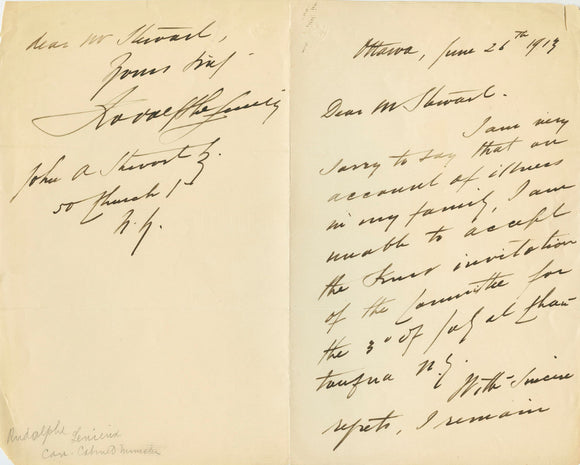 Ottawa, June 26th 1913
Dear Mr Stewart.
I am very
sorry to say that on
account of illness
in my family, I am
unable to accept
the kind invitation
of the Committee for
the 3rd of July at Chau-
tauqua N.Y.
With Sincere
regrets, I remain
dear Mr Stewart,
Yours
Rodolphe Lemieux
John A Stewart
50 Church St
N.Y.
Rudolphe Lemieux
Can. Cabinet Minister